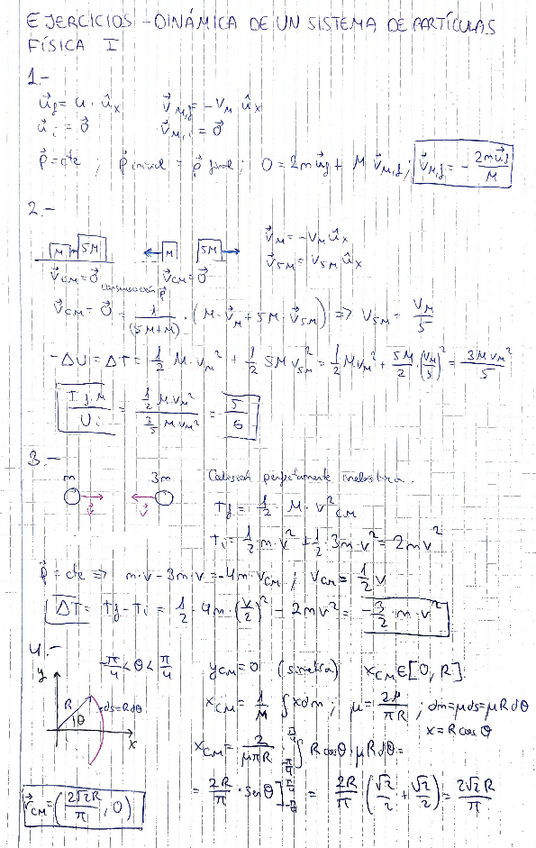 EJERCICIOS - DINÁMICA DE UN SISTEMA DE PARTÍCULAS
FÍSICA I
1.-
u⃗f = u · ûx    v⃗M,f = -vM ûx
u⃗i = 0⃗    v⃗M,i = 0⃗
p⃗ = cte ; p⃗ inicial = p⃗ final ; 0 = 2m u⃗f + M v⃗M,f ; v⃗M,f = - 2m u⃗f / M
2.-
M 5M    M 5M    v⃗M = -vM ûx
v⃗5M = v5M ûx
v⃗CM = 0⃗    v⃗CM = 0⃗
conservación p⃗
v⃗CM = 0⃗ = 1/(5M+M) · (M · v⃗M + 5M · v⃗5M) => v5M = vM/5
-ΔU = ΔT = 1/2 M · vM² + 1/2 5M v5M² = 1/2 M vM² + 5M/2 · (vM/5)² = 3M vM²/5
Tf,M / Ui = 1/2 M vM² / 3/5 M vM² = 5/6
3.-
m    3m    Colisión perfectamente inelástica.
v⃗    v⃗    Tf = 1/2 · M · v²CM
Ti = 1/2 m · v² + 1/2 3m · v² = 2mv²
p⃗ = cte => m·v - 3m·v = -4m·vCM ; vCM = 1/2 v
ΔT = Tf - Ti = 1/2 · 4m · (v/2)² - 2mv² = -3/2 · m · v²
4.-
y    -π/4 < θ < π/4    yCM = 0 (simetría)    xCM ∈ [0, R]
R    θ    ds = Rdθ    x
xCM = 1/M ∫ x dm ; μ = 2M/πR ; dm = μds = μRdθ
x = R cos θ
xCM = 2/μπR ∫ R cosθ · μRdθ =
= 2R/π · senθ] = 2R/π (√2/2 + √2/2) = 2√2R/π
r⃗CM = (2√2R/π, 0)